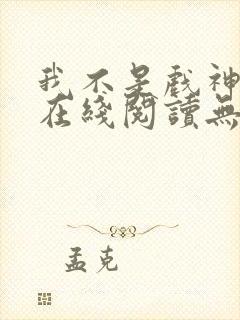 我不是戲神
在綫閱讀無
孟克